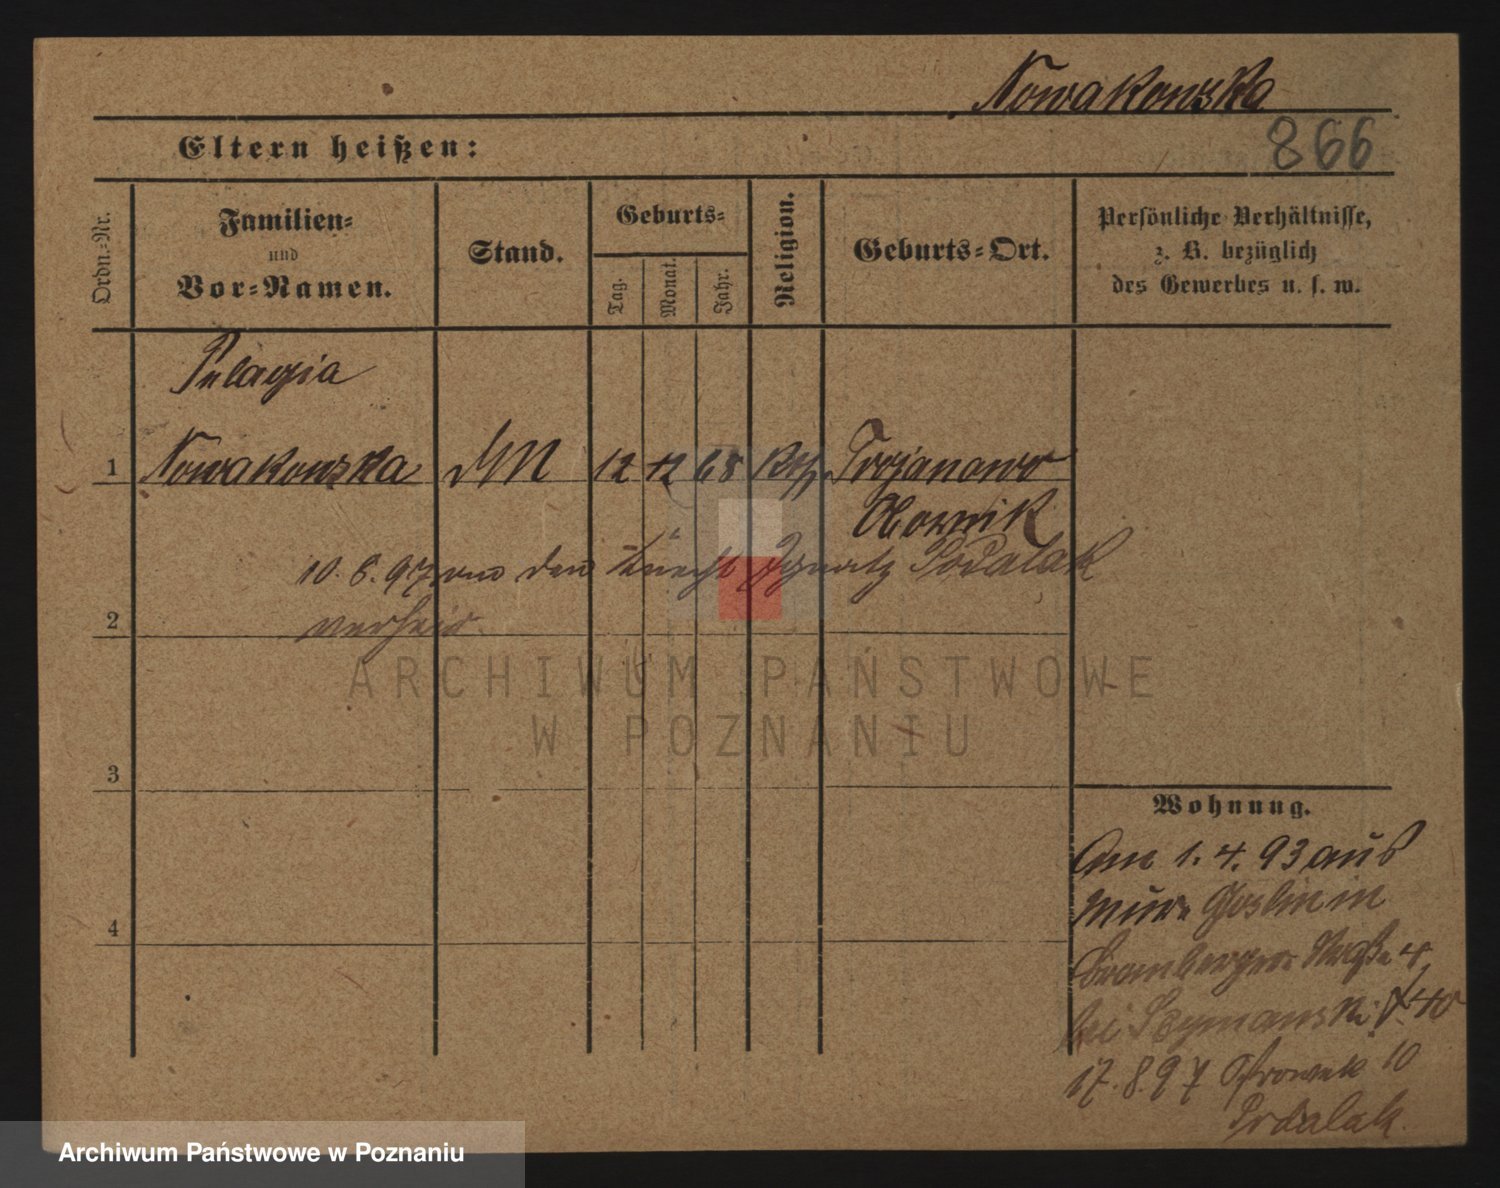 Nowakowska
866
Eltern heißen:
Ordn.-Nr.
Familien-
und
Vor-Namen.
Stand.
Geburts-
Tag.
Monat.
Jahr.
Religion.
Geburts-Ort.
Persönliche Verhältnisse,
z. B. bezüglich
des Gewerbes u. s. w.
Pelagia
1 Nowakowska 12 12 68 Kth. Trojanowo
Obornik
10. 6. 97 den Knecht Ignatz Podalak
verheir.
2
3
4
ARCHIWUM PAŃSTWOWE
W POZNANIU
Wohnung.
Am 1. 4. 93 aus
Mur. Goslin in
Bromberger Straße 4,
bei Szymanski
17. 8. 97 Ostrowek 10
Podalak.
Archiwum Państwowe w Poznaniu